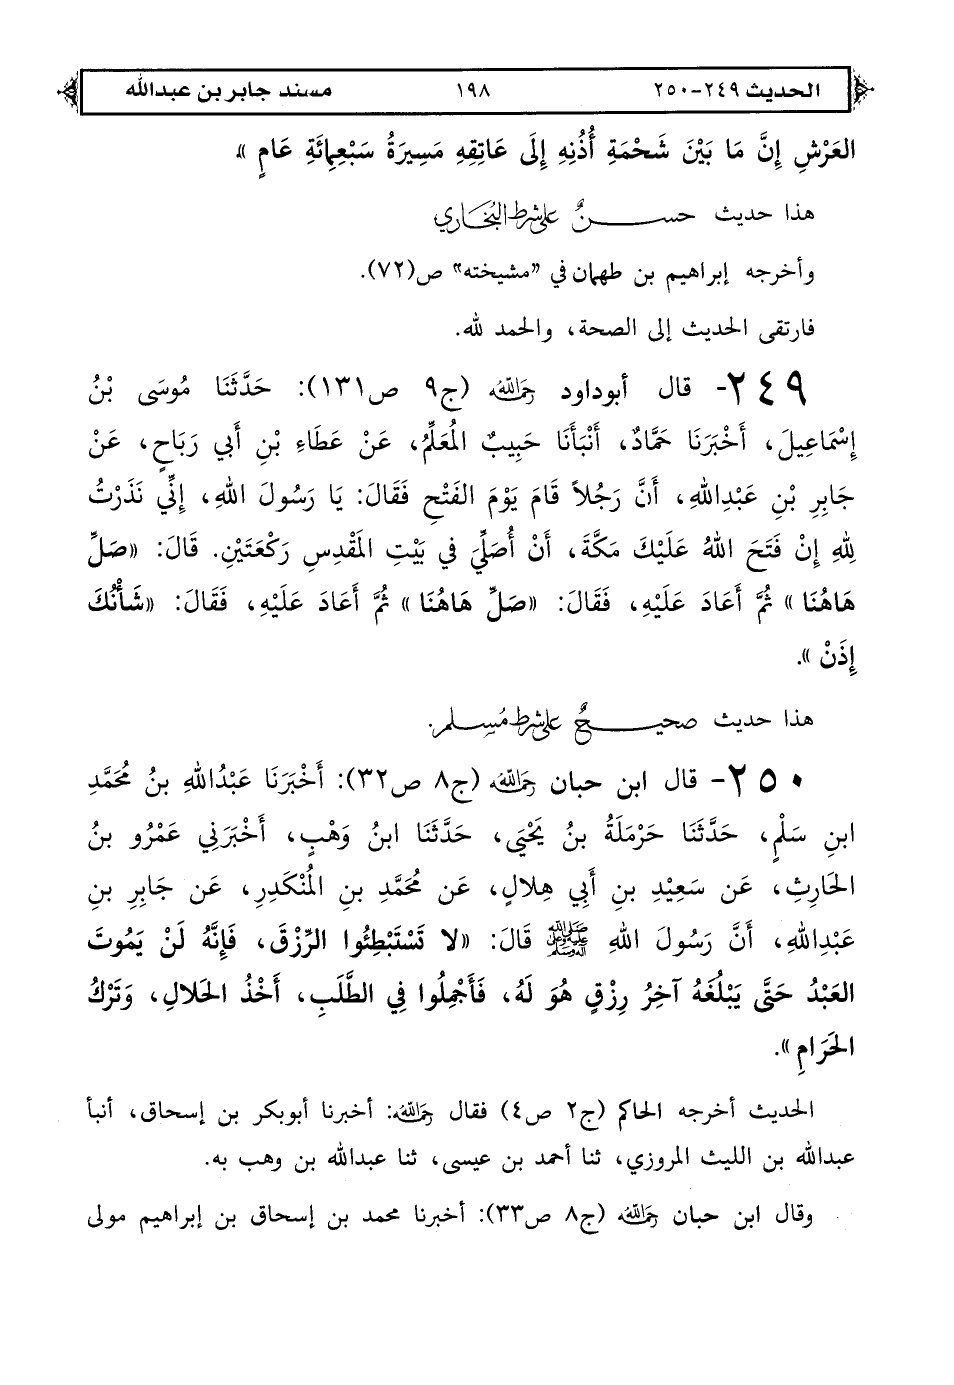 الحديث ٢٤٩-٢٥٠ ١٩٨ مسند جابر بن عبدالله
العَرْشِ إِنَّ مَا بَيْنَ شَحْمَةِ أُذُنِهِ إِلَى عَاتِقِهِ مَسِيرَةُ سَبْعِمِائَةِ عَامٍ».
هذا حديث حسنٌ على شرط البُخَاري
وأخرجه إبراهيم بن طهمان في "مشيخته" ص(٧٢).
فارتقى الحديث إلى الصحة، والحمد لله.
٢٤٩- قال أبوداود رحمه الله (ج٩ ص١٣١): حَدَّثَنَا مُوسَى بْنُ
إِسْمَاعِيلَ، أَخْبَرَنَا حَمَّادٌ، أَنْبَأَنَا حَبِيبٌ الْمُعَلِّمُ، عَنْ عَطَاءِ بْنِ أَبي رَبَاحٍ، عَنْ
جَابِرِ بْنِ عَبْدِاللهِ، أَنَّ رَجُلاً قَامَ يَوْمَ الفَتْحِ فَقَالَ: يَا رَسُولَ اللهِ، إِنِّي نَذَرْتُ
لِلهِ إِنْ فَتَحَ اللهُ عَلَيْكَ مَكَّةَ، أَنْ أُصَلِّيَ في بَيْتِ المَقْدِسِ رَكْعَتَيْنِ. قَالَ: «صَلِّ
هَاهُنَا» ثُمَّ أَعَادَ عَلَيْهِ، فَقَالَ: «صَلِّ هَاهُنَا» ثُمَّ أَعَادَ عَلَيْهِ، فَقَالَ: «شَأْنُكَ
إِذَنْ».
هذا حديث صحيحٌ على شرط مُسِلم.
٢٥٠- قال ابن حبان رحمه الله (ج٨ ص٣٢): أَخْبَرَنَا عَبْدُاللهِ بنُ مُحَمَّدِ
ابنِ سَلْمٍ، حَدَّثَنَا حَرْمَلَةُ بنُ يَحْيَى، حَدَّثَنَا ابنُ وَهْبٍ، أَخْبَرَنِي عَمْرُو بنُ
الحَارِثِ، عَن سَعِيْدِ بنِ أَبِي هِلالٍ، عَن مُحَمَّدِ بنِ الْمُنْكَدِرِ، عَن جَابِرِ بنِ
عَبْدِاللهِ، أَنَّ رَسُولَ اللهِ ﷺ قَالَ: «لا تَسْتَبْطِئُوا الرِّزْقَ، فَإِنَّهُ لَنْ يَمُوتَ
العَبْدُ حَتَّى يَبْلُغَهُ آخِرُ رِزْقٍ هُوَ لَهُ، فَأَجْمِلُوا فِي الطَّلَبِ، أَخْذُ الحَلالِ، وَتَرْكُ
الحَرَامِ».
الحديث أخرجه الحاكم (ج٢ ص٤) فقال رحمه الله: أخبرنا أبوبكر بن إسحاق، أنبأ
عبدالله بن الليث المروزي، ثنا أحمد بن عيسى، ثنا عبدالله بن وهب به.
وقال ابن حبان رحمه الله (ج٨ ص٣٣): أخبرنا محمد بن إسحاق بن إبراهيم مولى